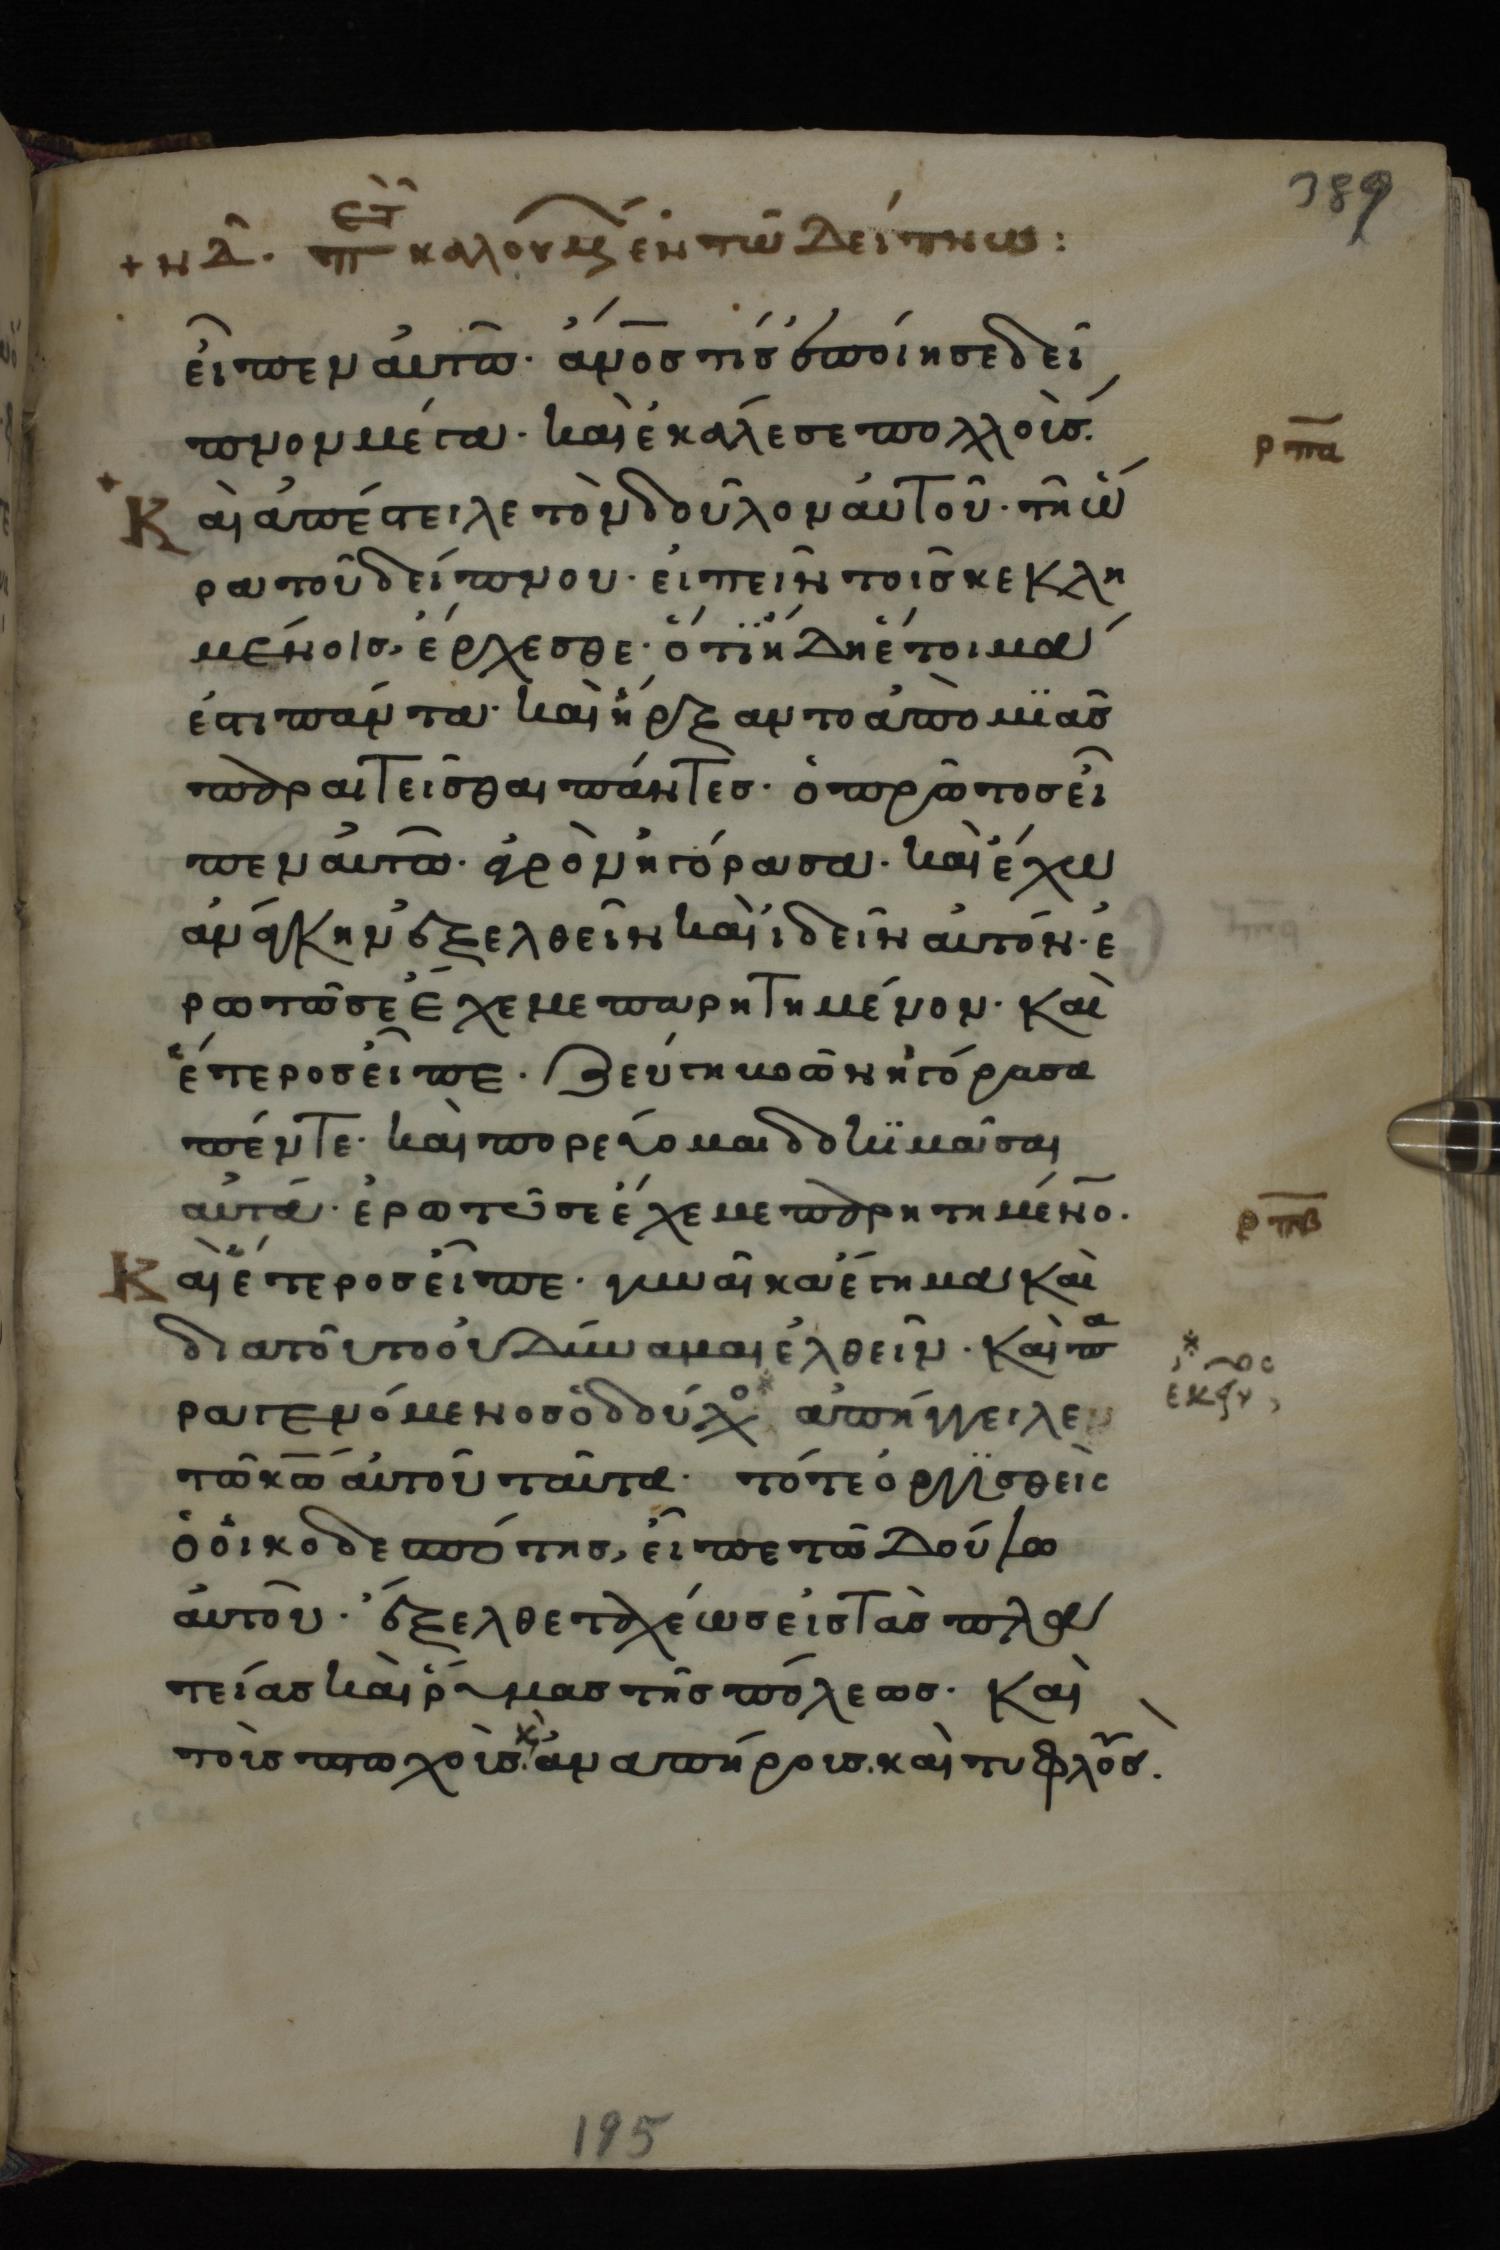 389
+ νδ. περὶ τῶν καλουμένων ἐν τῷ δείπνω:
εἶπεν αὐτῶ· ἄνος τίς ἐποίησε δεῖ
πνον μέγα· καὶ ἐκάλεσε πολλούς.
ρπα
Καὶ ἀπέστειλε τὸν δοῦλον αὐτοῦ· τῆ ὥ
ρα τοῦ δείπνου· εἰπεῖν τοῖς κεκλη
μένοις, ἔρχεσθε· ὅτι ἤδη ἕτοιμά
ἐστι πάντα· καὶ ἤρξαντο ἀπὸ μϊᾶς
παραιτεῖσθαι πάντες· ὁ πρῶτος εἶ
πεν αὐτῶ· ἀγρὸν ἠγόρασα· καὶ ἔχω
ἀνάγκην ἐξελθεῖν καὶ ἰδεῖν αὐτόν· ἐ
ρωτῶ σε ἔχε με παρητημένον· καὶ
ἕτερος εἶπε· ζεύγη βοῶν ἠγόρασα
πέντε· καὶ πορεύομαι δοκϊμᾶσαι
αὐτά· ἐρωτῶ σε ἔχε με παρητημένο̄.
ρπβ
Καὶ ἕτερος εἶπε· γυναῖκα ἔγημα καὶ
διατοῦτο οὐ δύναμαι ἐλθεῖν· καὶ πα
ραγενόμενος ὁ δοῦλο ἀπήγγειλεν
τῶ κῶ αὐτοῦ ταῦτα· τότε ὀργϊσθεὶς
ὁ οἰκοδεσπότης, εἶπε τῶ δούλω
αὐτοῦ· ἔξελθε ταχέως εἰς τὰς πλα
τείας καὶ ῥύμας τῆς πόλεως· καὶ
τοὺς πτωχοὺς. κ̀ ἀναπήρους. καὶ τυφλοὺς.
195